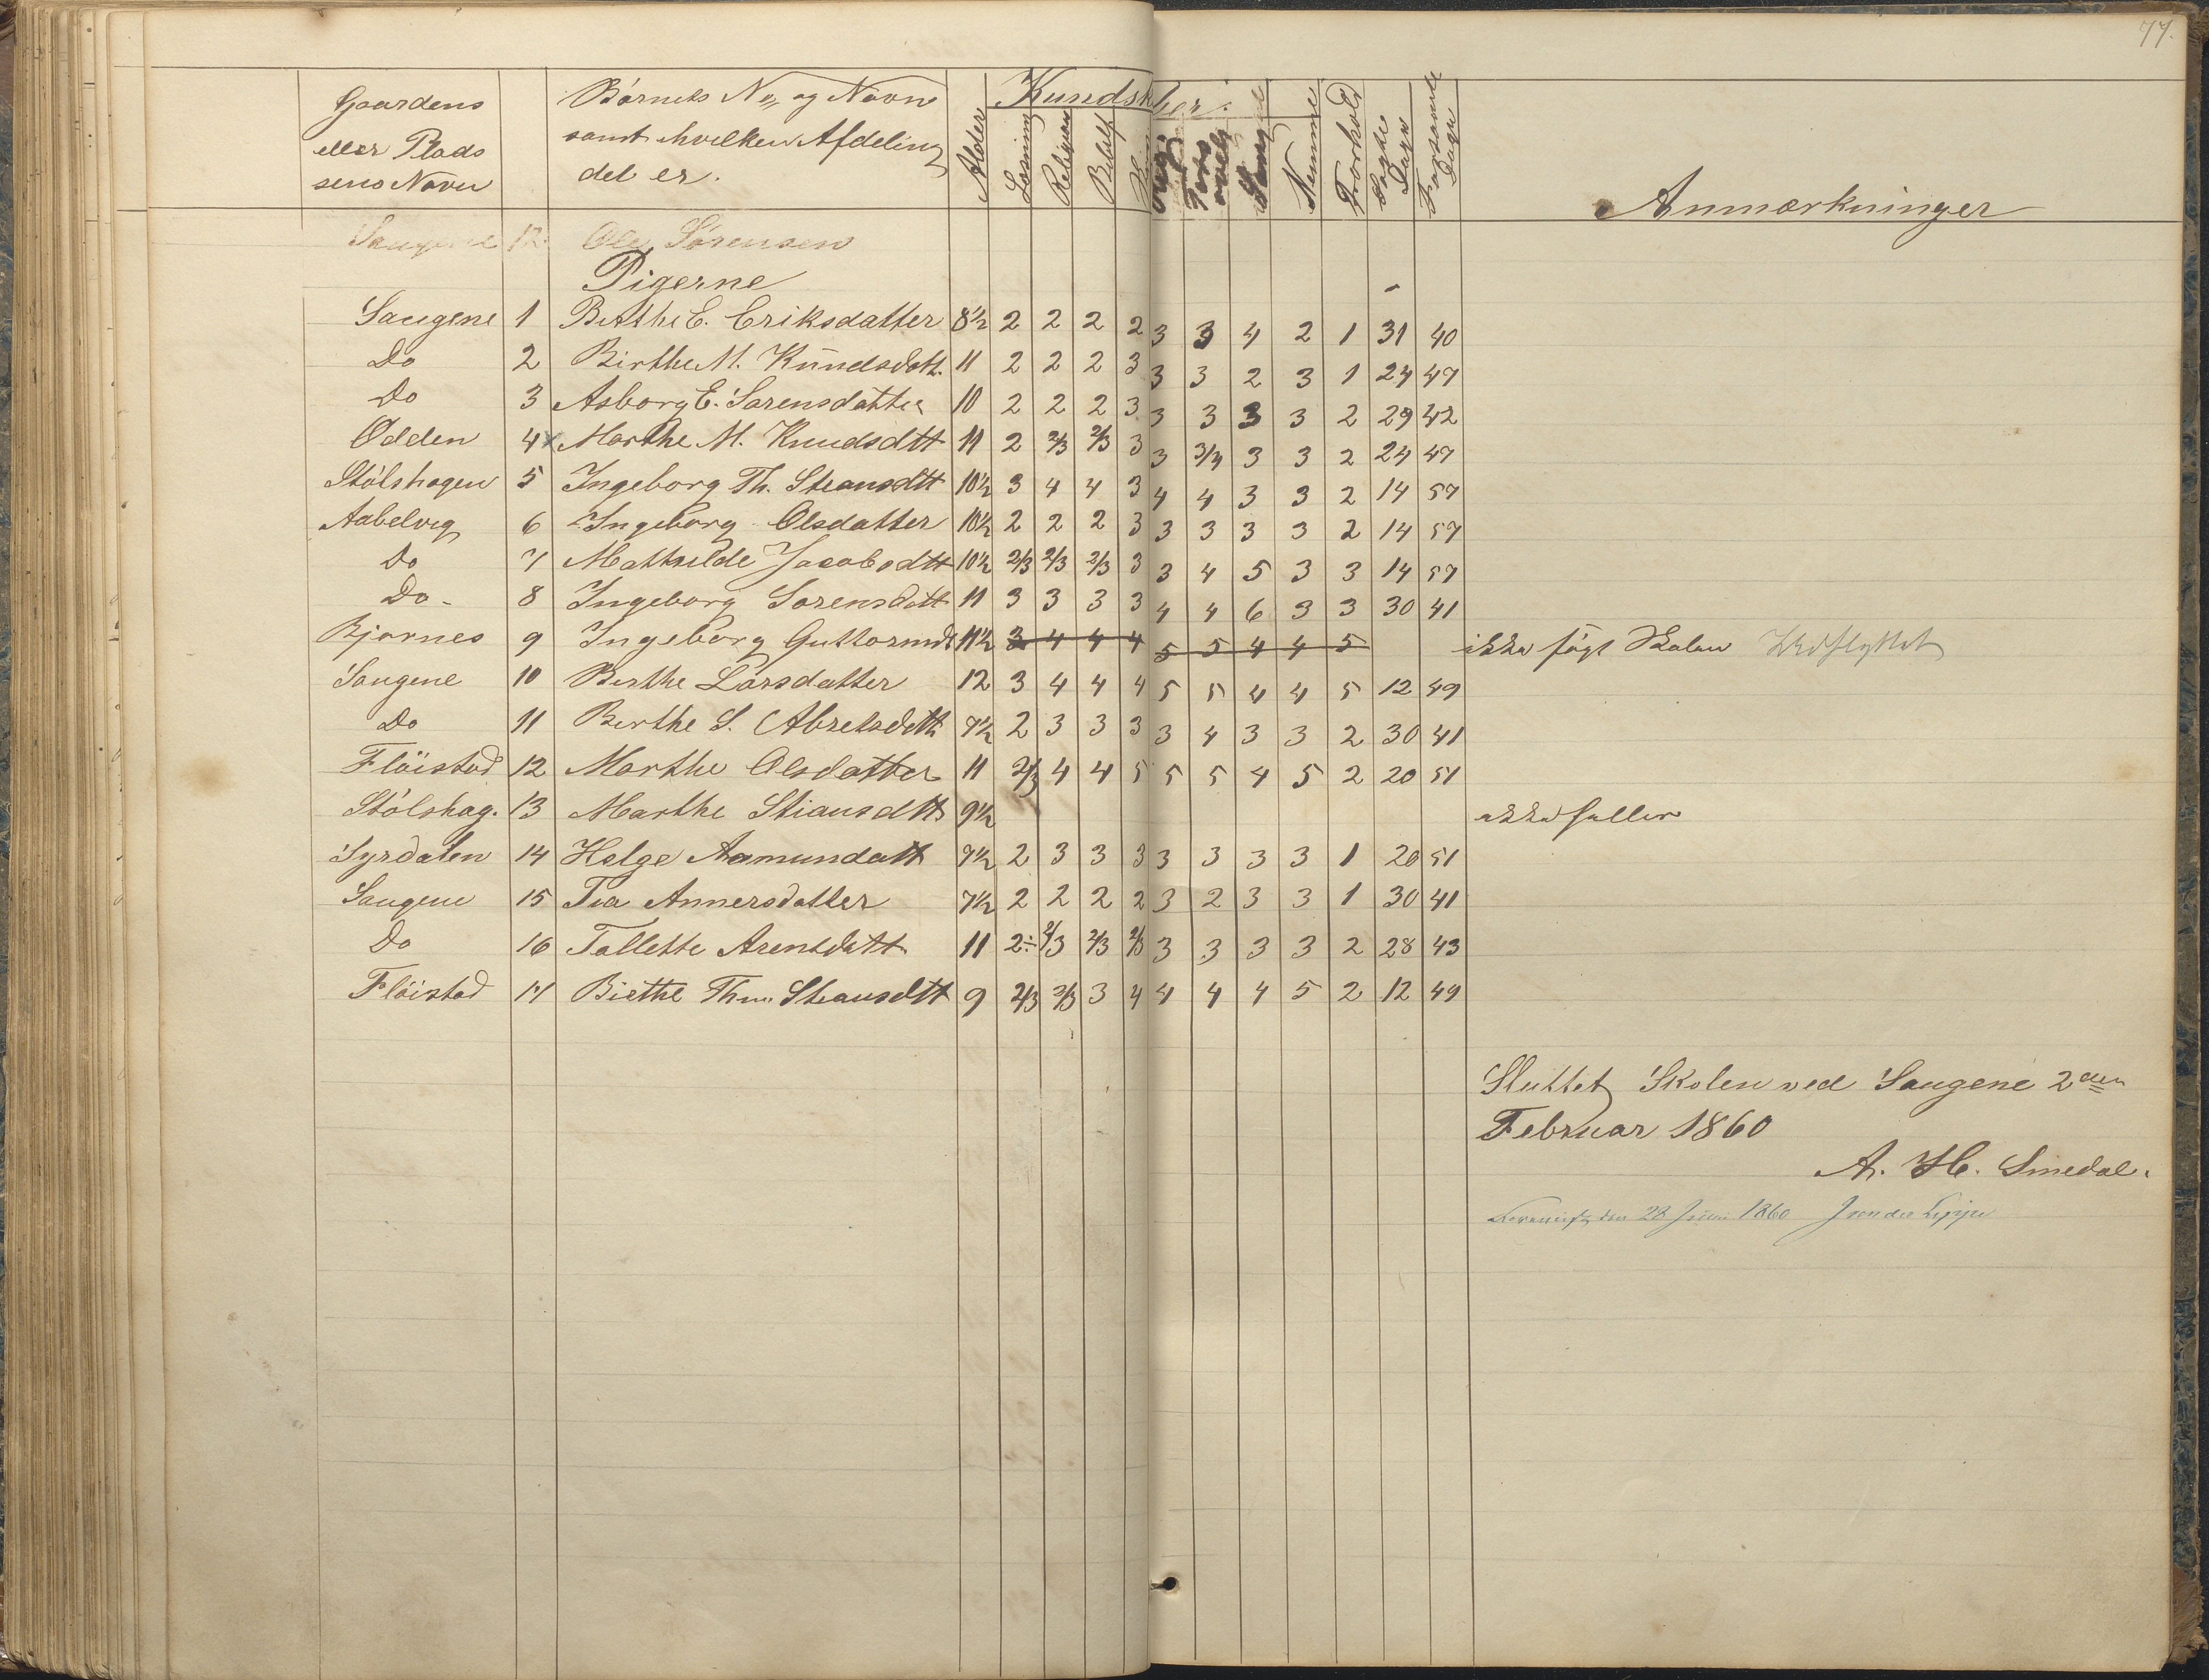 77.
Gaardens eller Pladsens Navn | Børnets No og Navn samt hvilken Afdeling det er. | Alder | Kundskaber: Læsning | Religion | Bibelh | Sang | Nemme | Forhold | Søgte Dage | Forsømte Dage | Anmærkninger
Saugene 12 Ole Sørensen
Pigerne
Saugene 1 Birthe E. Eriksdatter 8½ 2 2 2 2 3 3 4 2 1 31 40
Do 2 Birthe M. Knudsdatt. 11 2 2 2 3 3 3 2 3 1 24 47
Do 3 Asborg E. Sørensdatter 10 2 2 2 3 3 3 3 3 2 29 42
Odden 4 x Marthe M. Knudsdtt 11 2 2/3 2/3 3 3 3/4 3 3 2 24 47
Stølshagen 5 Ingeborg Th. Steansdtt 10½ 3 4 4 3 4 4 3 3 2 14 57
Aabelvig 6 Ingeborg Olsdatter 10½ 2 2 2 3 3 3 3 3 2 14 57
Do 7 Mathilde Jacobsdtt 10½ 2/3 2/3 2/3 3 3 4 5 3 3 14 57
Do - 8 Ingeborg Sørensdatt 11 3 3 3 3 4 4 6 3 3 30 41
Bjornes 9 Ingeborg Guttormdt 11½ 3 4 4 4 5 5 4 4 5 ikke søgt Skolen Udflyttet
Saugene 10 Birthe Larsdatter 12 3 4 4 4 5 5 4 4 5 12 49
Do 11 Berthe S. Abrelsdett 7½ 2 3 3 3 3 4 3 3 2 30 41
Fløistad 12 Marthe Olsdatter 11 2/3 4 4 5 5 5 4 5 2 20 51
Stølshag. 13 Marthe Stiansdtt 9½
Syrdalen 14 Helge Aamundatt 7½ 2 3 3 3 3 3 3 3 1 20 51
Saugene 15 Tea Annersdatter 7½ 2 2 2 2 3 2 3 3 1 30 41
Do 16 Tallette Arentdatt 11 2÷ 2/3 2/3 2/3 3 3 3 3 2 28 43
Fløistad 17 Birthe Thm. Steansdtt 9 2/3 2/3 3 4 4 4 4 5 2 12 49
Sluttet Skolen ved Saugene 2den
Februar 1860
A. H. Smedal.
den 28 Juni 1860 J von der Lippe